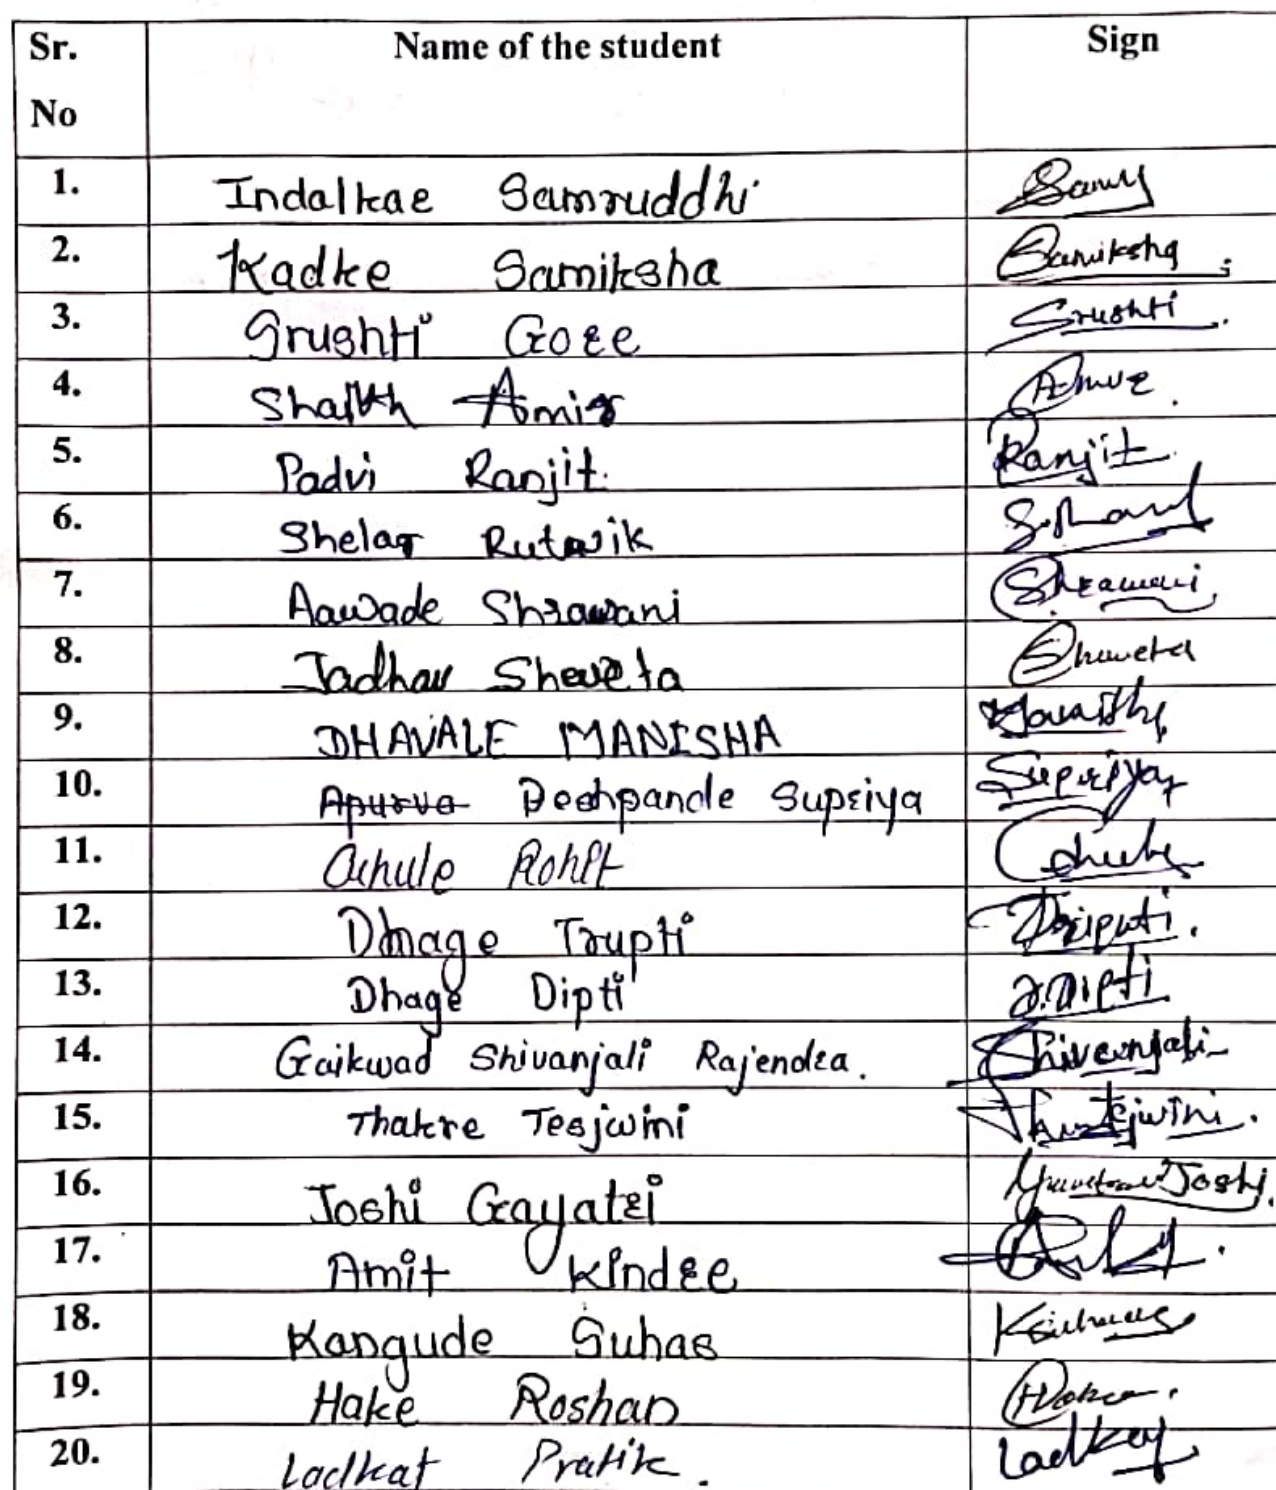 Sr. No Name of the student Sign
1. Indalkar Samruddhi Samy
2. Kadke Samiksha Samiksha
3. Srushti Gore Srushti
4. Shaikh Amir
5. Padvi Ranjit. Ranjit
6. Shelar Rutwik
7. Aawade Shrawani Shrawani
8. Jadhav Sheweta Shweta
9. DHAVALE MANISHA
10. Apurva Deshpande Supriya Supriya
11. Rohit
12. Dhage Trupti
13. Dhage Dipti D.Dipti
14. Gaikwad Shivanjali Rajendra. Shivanjali
15. Thakre Tesjwini Tejwini.
16. Joshi Gayatri Joshi
17. Amit Kindre
18. Kangude Suhas
19. Hake Roshan
20. Ladkat Pratik.